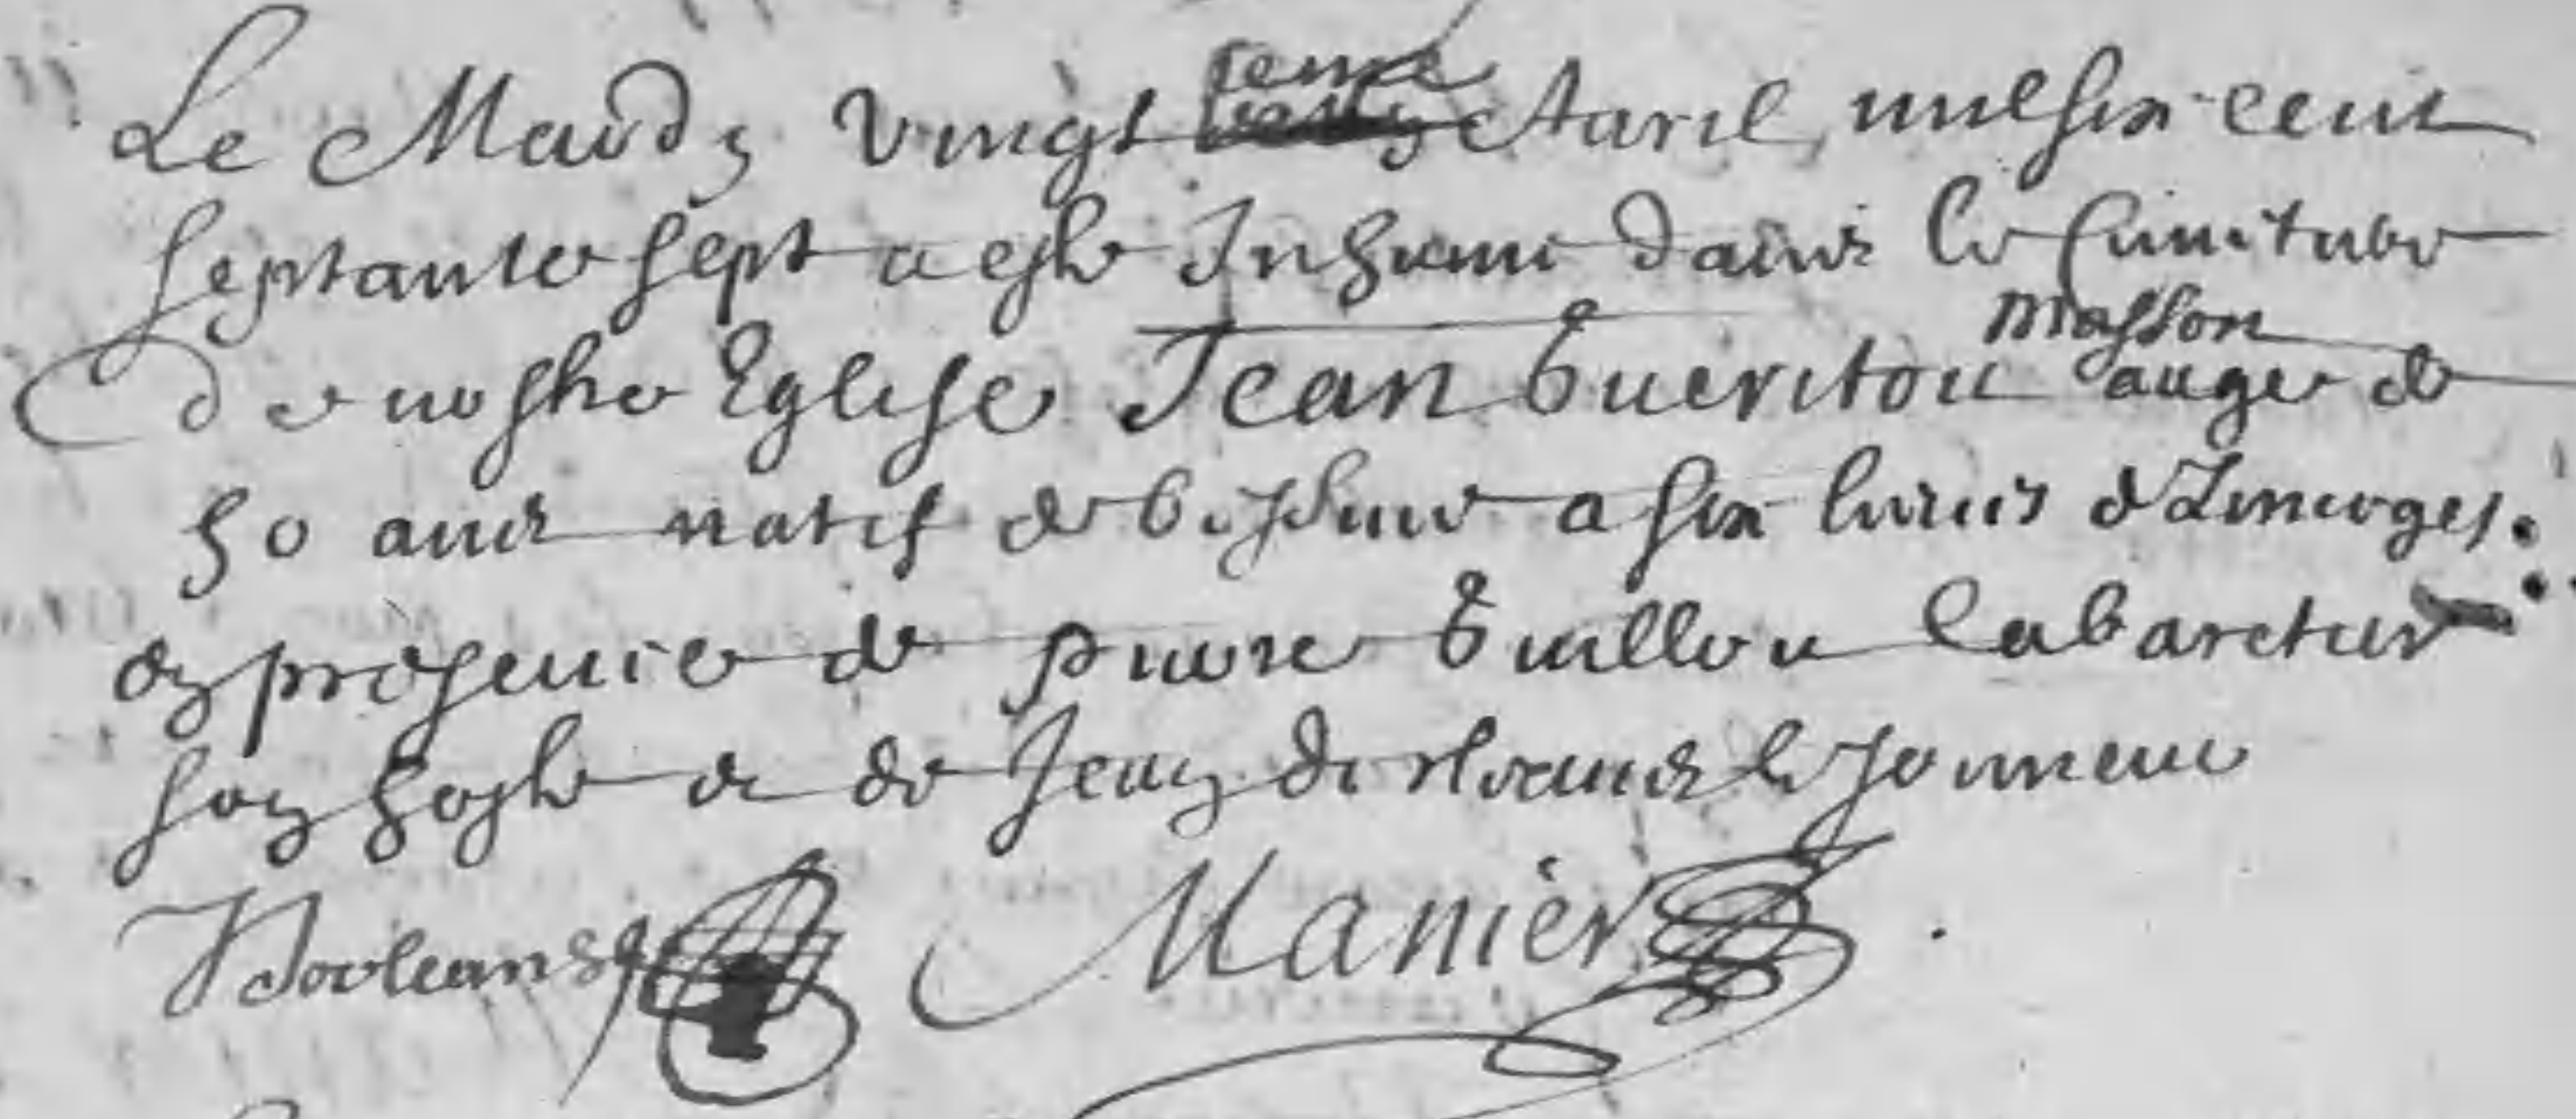 Le Mardy vingt ieme Auril mil six cent
septante sept a esté Inhumé dans le Cimitiere
de nostre Eglise Jean Gueritou masson augé de
50 ans natif de a six lieues de Limoges
en presence de pierre Guillou Cabaretier
son hoste et de Jean Dorleans le Jonneur
Dorleans Manier